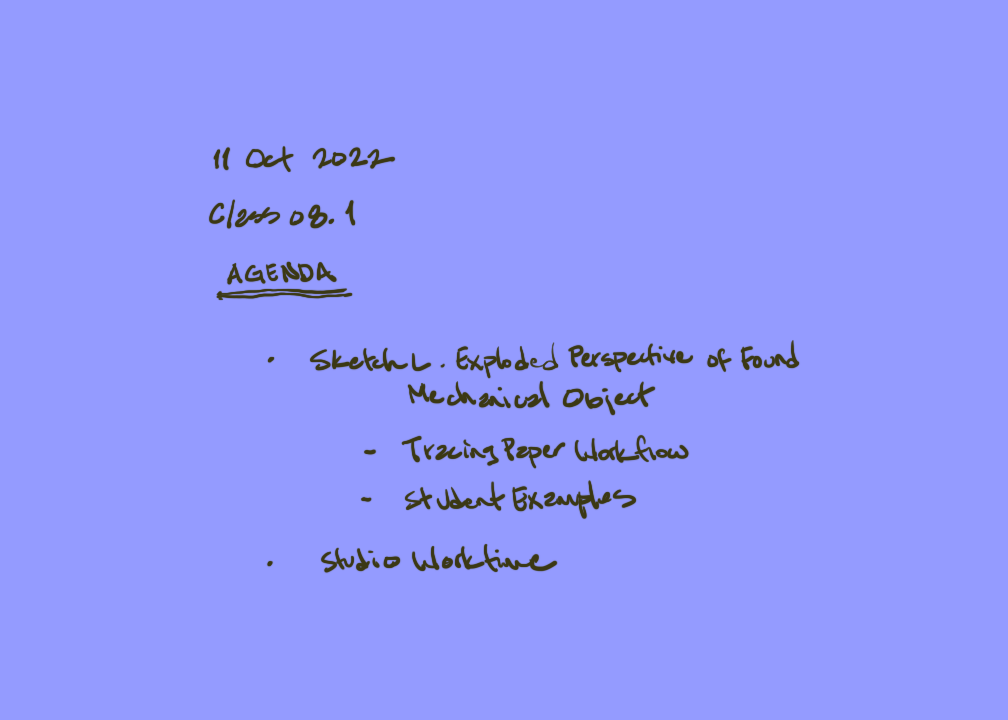 11 Oct 2022
Class 08.1
AGENDA
• Sketch L. Exploded Perspective of Found
Mechanical Object
- Tracing Paper Workflow
- Student Examples
• Studio Worktime